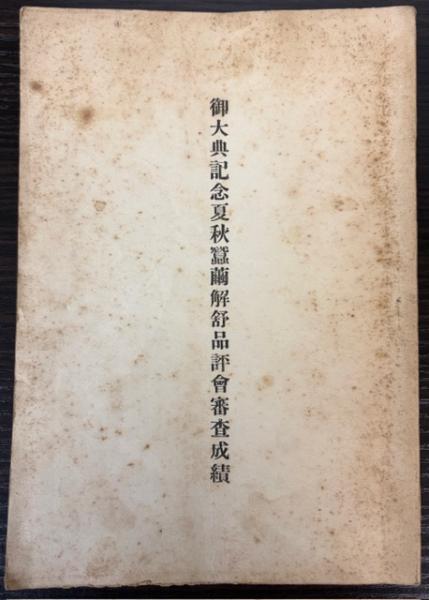 御大典記念夏秋蠶繭解舒品評會審査成績